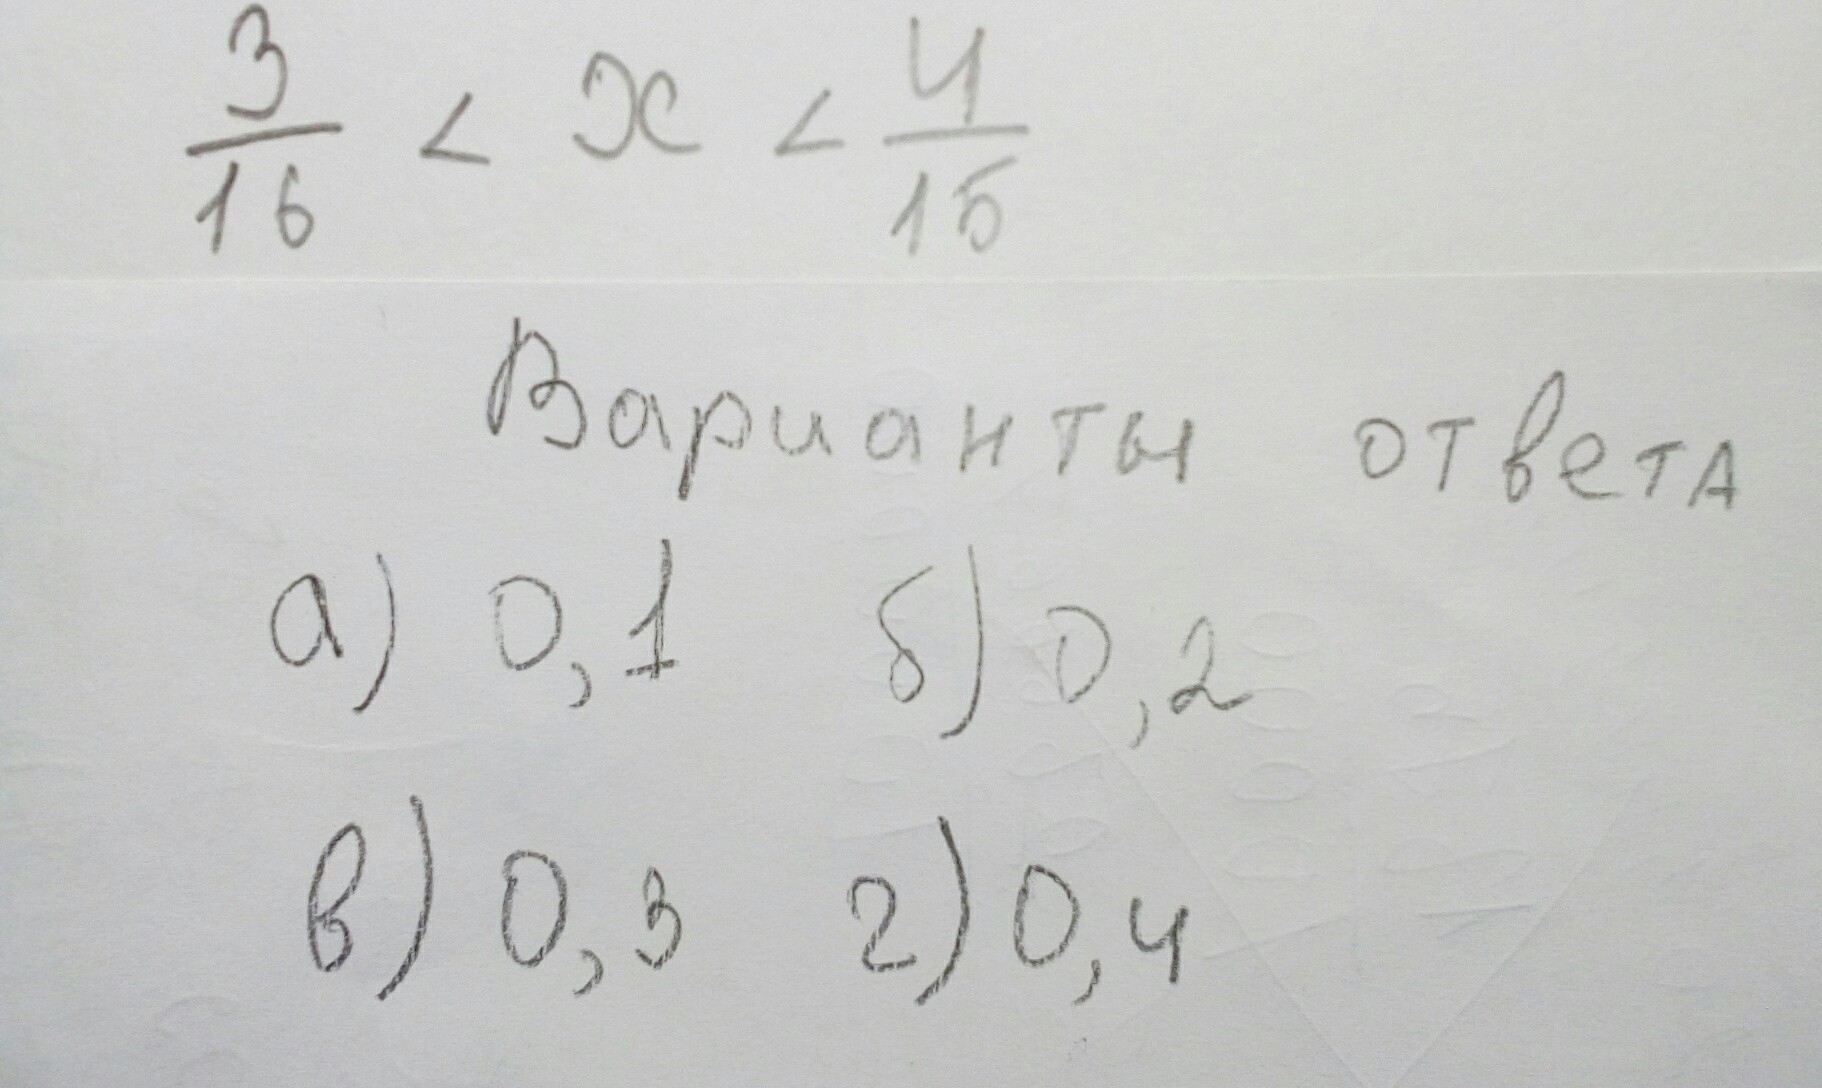 3/16 < x < 4/15
Варианты ответа
а) 0,1 б) 0,2
в) 0,3 г) 0,4